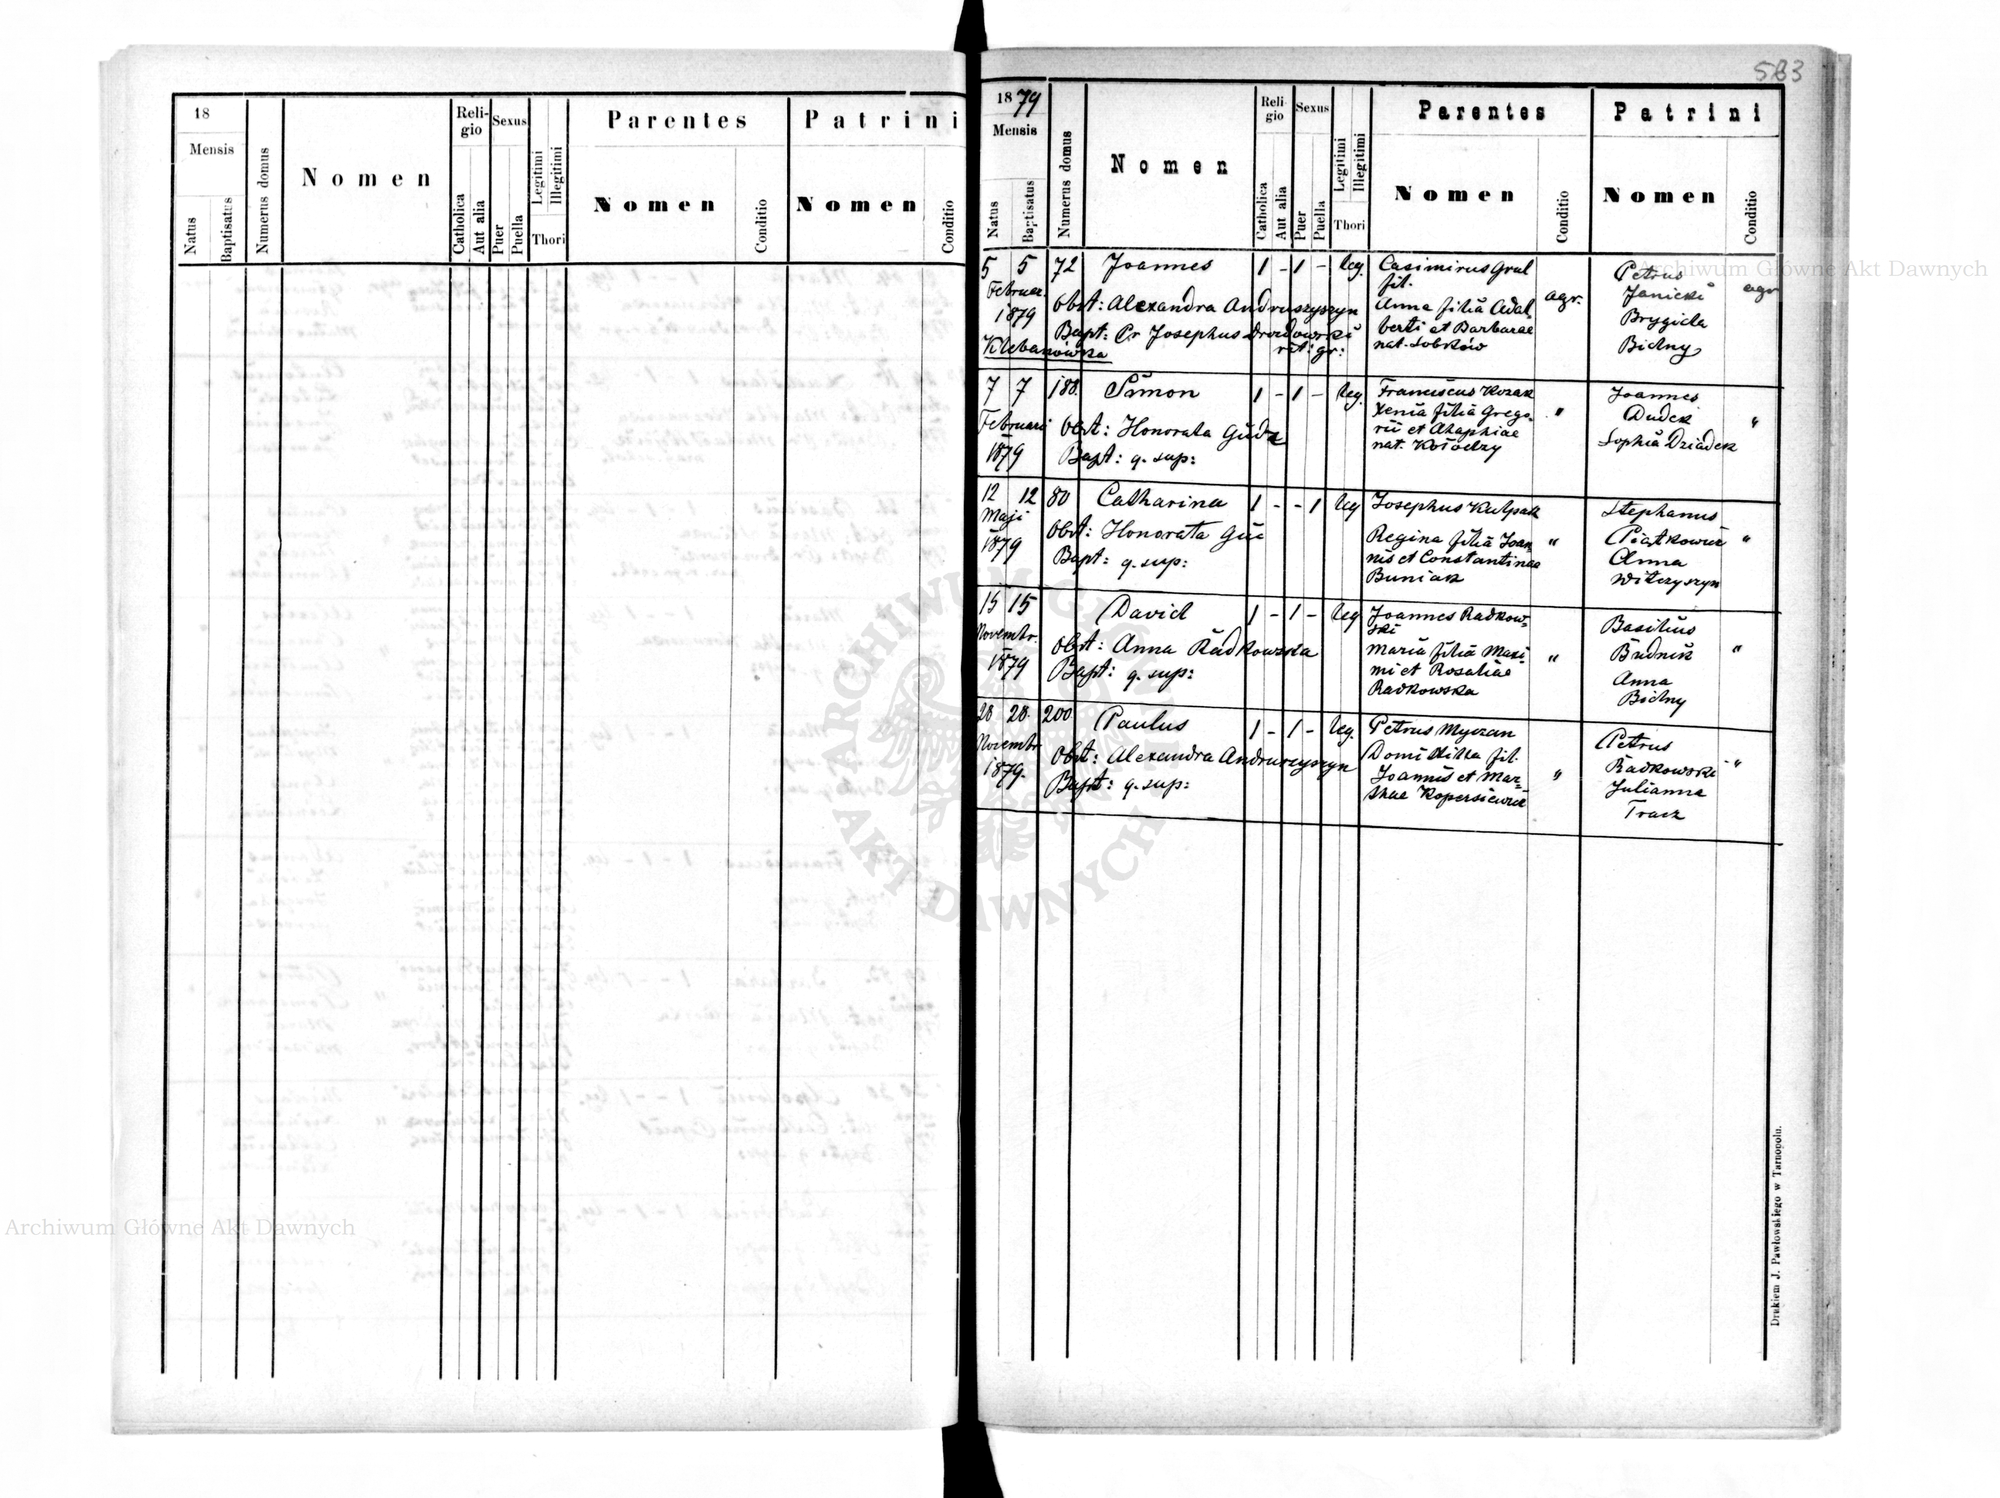 18
Mensis
Natus
Baptisatus
Numerus domus
Nomen
Religio
Catholica
Aut alia
Sexus
Puer
Puella
Legitimi
Illegitimi
Thori
Parentes
Nomen
Conditio
Patrini
Nomen
Conditio
583
1879
Mensis
Natus
Baptisatus
Numerus domus
Nomen
Religio
Catholica
Aut alia
Sexus
Puer
Puella
Legitimi
Illegitimi
Thori
Parentes
Nomen
Conditio
Patrini
Nomen
Conditio
5 5 72 Joannes 1 - 1 - leg.
Februar.
1879
Klebanówka
Obst: Alexandra Andruszyszyn
Bapt: Pr Josephus
rit: gr:
Casimirus Gral
fil.
Anna filia Adal-
berti et Barbarae
nat. Sobków
agr.
Petrus
Janicki
Brygida
Bidny
agr
7 7 188. Simon 1 - 1 - leg.
Februarii
1879
Obst: Honorata Gudz
Bapt: q. sup:
Franciscus Kozak
Xenia filia Grego-
rii et Ahaphiae
nat. Kołodzy
"
Joannes
Dudek
Sophia Dziadek
"
12 12 80 Catharina 1 - - 1 leg
Maji
1879
Obst: Honorata
Bapt: q. sup:
Josephus Kulpak
Regina filia Joan-
nis et Constantinae
Buniak
"
Stephanus
Piątkowicz
Anna
Witczyszyn
"
15 15 David 1 - 1 - leg
Novembr.
1879
Obst: Anna Radkowska
Bapt: q. sup:
Joannes Radkow-
ski
Maria filia Maxi-
mi et Rosaliae
Radkowska
"
Basilius
Budnik
Anna
Bidny
"
28 28. 200. Paulus 1 - 1 - leg.
Novembr
1879.
Obst: Alexandra Andruszyszyn
Bapt: q. sup:
Petrus Myczan
fil.
Joannis et Mar-
Kopersiewicz
"
Petrus
Radkowski
Julianna
Tracz
"
Drukiem J. Pawłowskiego w Tarnopolu.
Archiwum Główne Akt Dawnych
Archiwum Główne Akt Dawnych
ARCHIWUM GŁÓWNE
AKT DAWNYCH